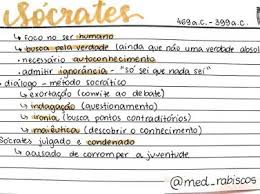 Sócrates
469 a.C. - 399 a.C.
↳ foco no ser humano
↳ busca pela verdade (ainda que não uma verdade absol
• necessário autoconhecimento
• admitir ignorância - "só sei que nada sei"
• diálogo - método socrático
↳ exortação (convite ao debate)
↳ indagação (questionamento)
↳ ironia (busca pontos contraditórios)
↳ maiêutica (descobrir o conhecimento)
Sócrates julgado e condenado
↳ acusado de corromper a juventude
@med_rabiscos